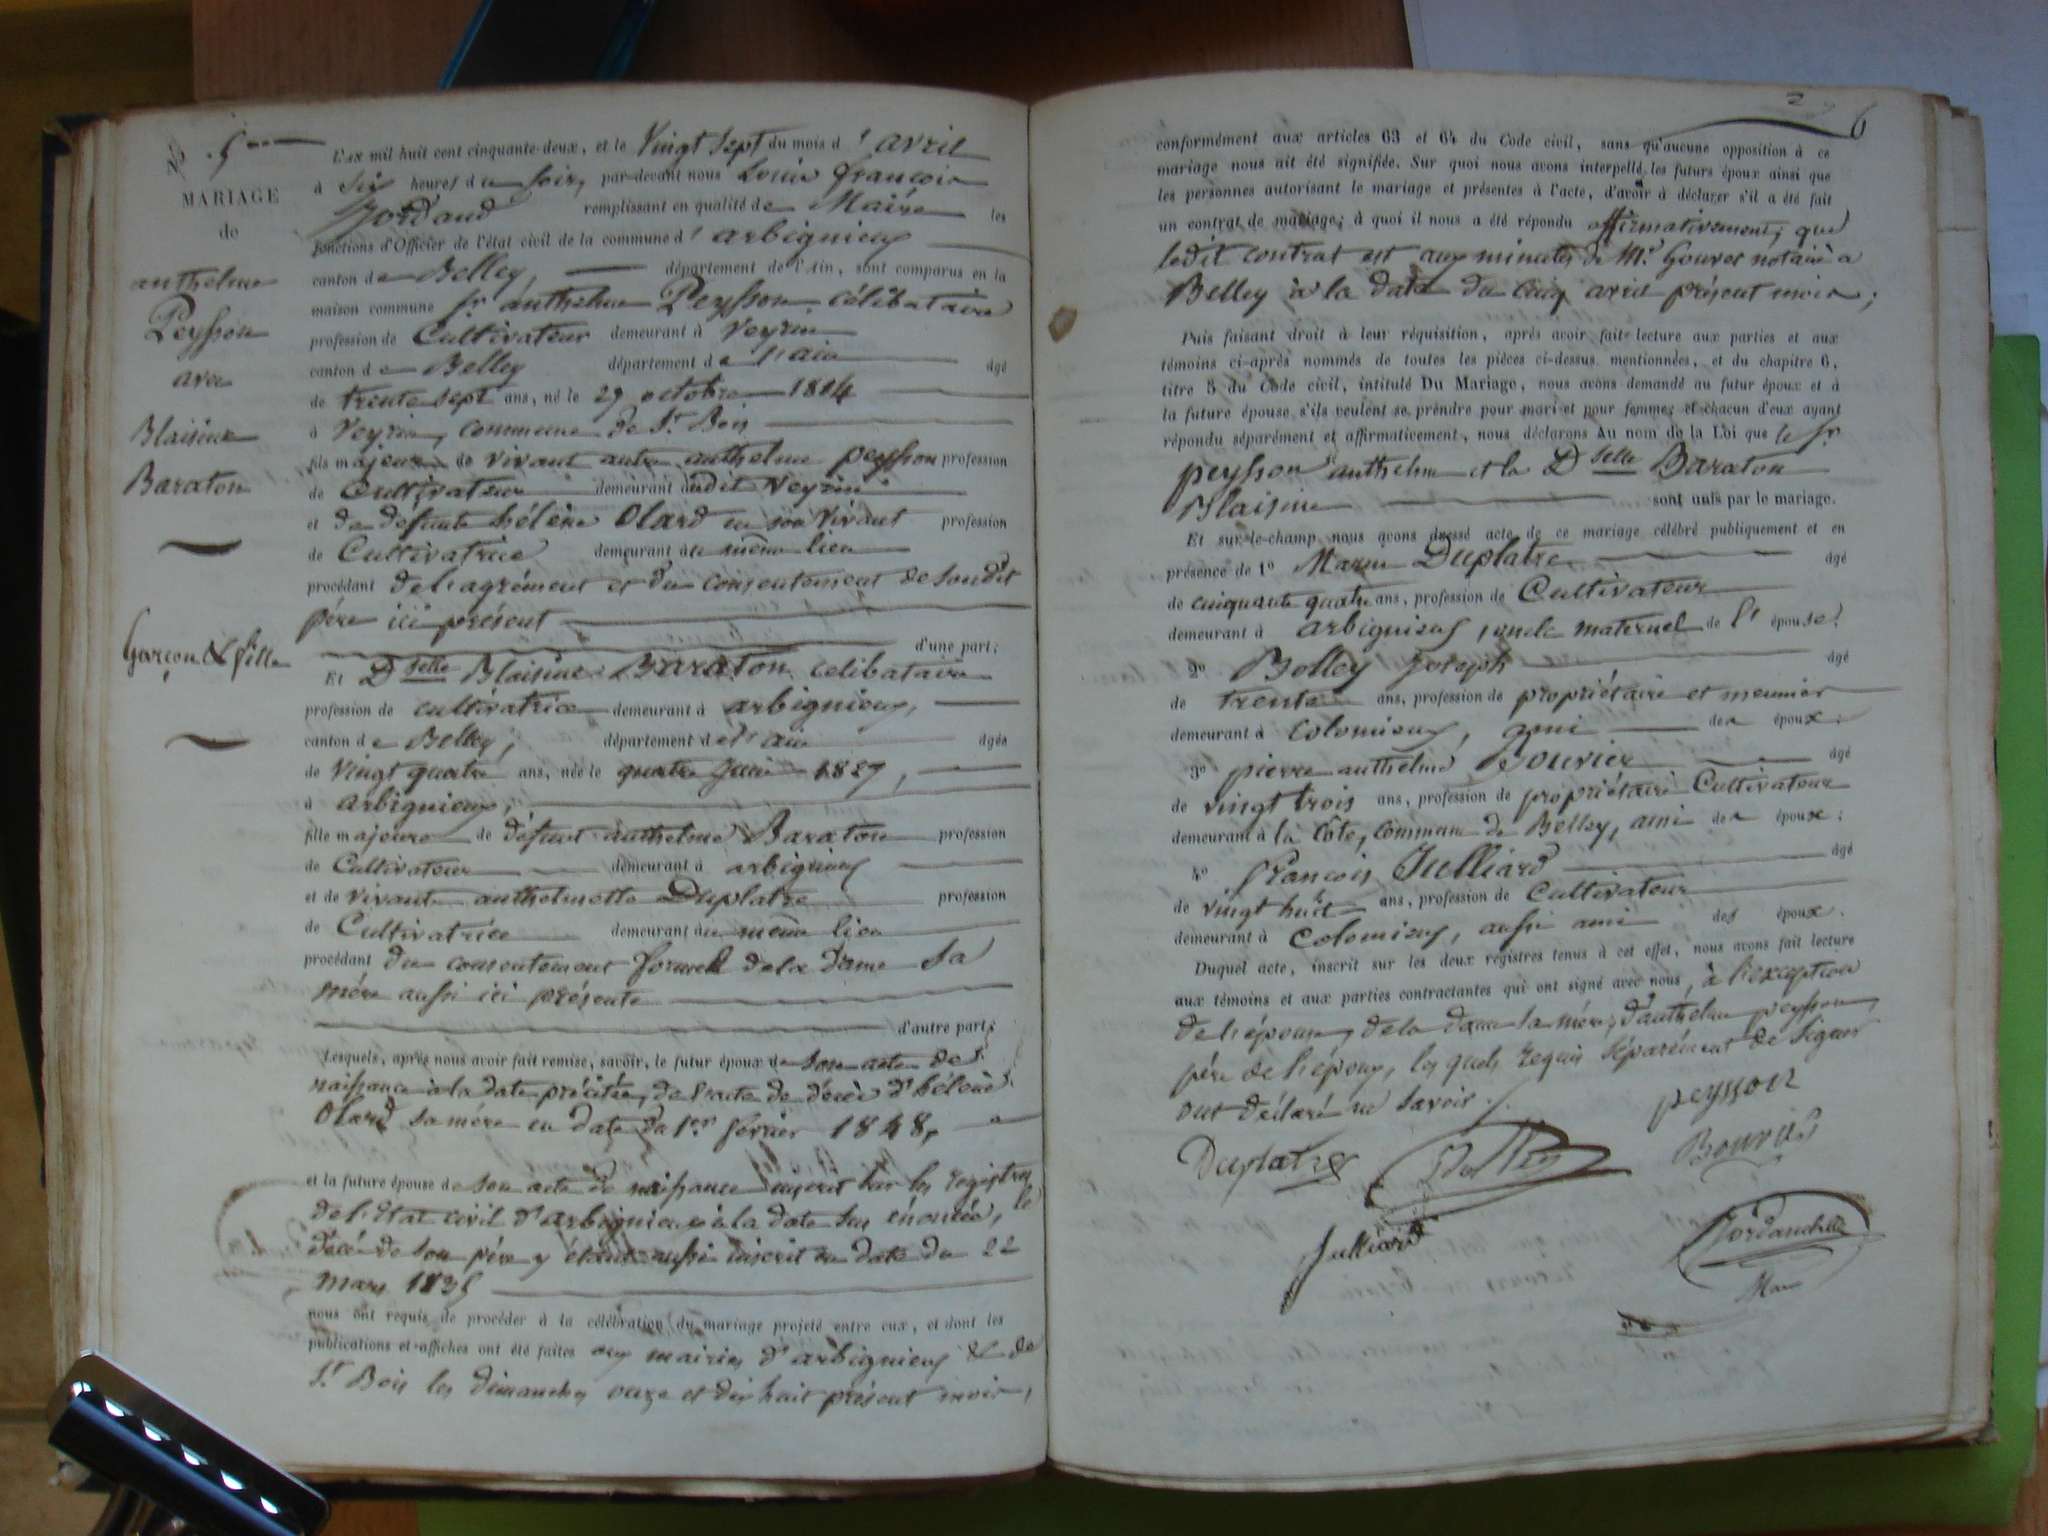 N° 5
MARIAGE
de
anthelme
Peysson
avec
Blaisine
Baraton
Garçon & fille
L'AN mil huit cent cinquante-deux, et le Vingt sept du mois d'avril
à Six heures du soir, par-devant nous Louis françois
Jordand remplissant en qualité de Maire les
fonctions d'Officier de l'état civil de la commune d'arbignieux
canton de Belley, département de l'Ain, sont comparus en la
maison commune sr anthelme Peysson célibataire
profession de Cultivateur demeurant à Veyrin
canton de Belley département de l'ain âgé
de trente sept ans, né le 29 octobre 1814
à Veyrin, commune de St Bois
fils majeur de vivant autre anthelme peysson profession
de Cultivateur demeurant audit Veyrin
et de défunte hélène Olard en son vivant profession
de Cultivatrice demeurant au même lieu
procédant de l'agrément et du consentement de son dit
père ici présent
d'une part;
Et Dselle Blaisine Baraton célibataire
profession de cultivatrice demeurant à arbignieux,
canton de Belley, département de l'ain âgée
de vingt quatre ans, née le quatre juin 1827,
à arbignieux,
fille majeure de défunt anthelme Baraton profession
de Cultivateur demeurant à arbignieux
et de vivante anthelmette Duplatre profession
de Cultivatrice demeurant au même lieu
procédant du consentement formel de la dame sa
mère aussi ici présente
d'autre part;
Lesquels, après nous avoir fait remise, savoir, le futur époux de son acte de
naissance à la date précitée, de l'acte de décès d'hélène
Olard sa mère en date du 1er février 1848,
et la future épouse de son acte de naissance inscrit sur les registres
de l'Etat civil d'arbignieux à la date sus énoncée, le
décès de son père y étant aussi inscrit en date du 22
mars 1835
nous ont requis de procéder à la célébration du mariage projeté entre eux, et dont les
publications et affiches ont été faites aux mairies d'arbignieux & de
St Bois les dimanches onze et dix huit présent mois,
6
conformément aux articles 63 et 64 du Code civil, sans qu'aucune opposition à ce
mariage nous ait été signifiée. Sur quoi nous avons interpellé les futurs époux ainsi que
les personnes autorisant le mariage et présentes à l'acte, d'avoir à déclarer s'il a été fait
un contrat de mariage; à quoi il nous a été répondu affirmativement, que
ledit contrat est aux minutes de Me Gouvet notaire à
Belley à la date du cinq avril présent mois;
Puis faisant droit à leur réquisition, après avoir fait lecture aux parties et aux
témoins ci-après nommés de toutes les pièces ci-dessus mentionnées, et du chapitre 6,
titre 5 du Code civil, intitulé Du Mariage, nous avons demandé au futur époux et à
la future épouse s'ils veulent se prendre pour mari et pour femme; et chacun d'eux ayant
répondu séparément et affirmativement, nous déclarons AU nom de la Loi que le sr
peysson anthelme et la Dselle Baraton
Blaisine sont unis par le mariage.
Et sur-le-champ nous avons dressé acte de ce mariage célébré publiquement et en
présence de 1° Marin Duplatre âgé
de cinquante quatre ans, profession de Cultivateur
demeurant à arbignieux, oncle maternel de l'épouse;
2° Bolley joseph âgé
de trente ans, profession de propriétaire et meunier
demeurant à Colomieux, ami des époux;
3° pierre anthelme Bouvier âgé
de vingt trois ans, profession de propriétaire Cultivateur
demeurant à la Côte, commune de Belley, ami des époux;
4° François Julliard âgé
de vingt huit ans, profession de Cultivateur
demeurant à Colomieux, aussi ami des époux.
Duquel acte, inscrit sur les deux registres tenus à cet effet, nous avons fait lecture
aux témoins et aux parties contractantes qui ont signé avec nous, à l'exception
de l'épouse, de la dame sa mère, d'anthelme peysson,
père de l'époux, les quels requis séparément de signer
ont déclaré ne savoir ./.
peysson
Duplatre
Bolley
Bouvier
Julliard
Maire